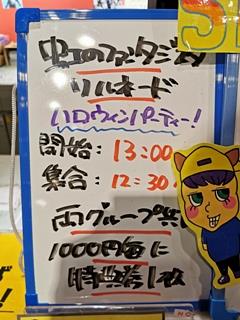 虹のファンタジスタ
リルネード
ハロウィンパーティー!
開始:13:00
集合:12:30
両グループ共
1000円毎に
特典券1枚